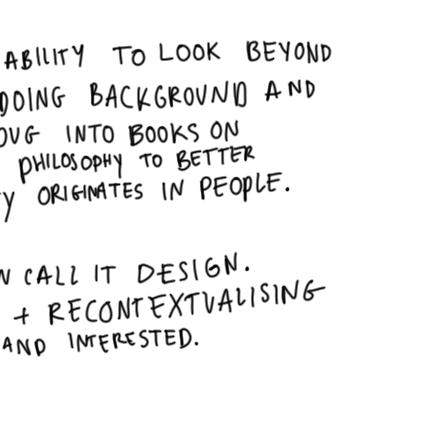 ABILITY TO LOOK BEYOND
DOING BACKGROUND AND
OUG INTO BOOKS ON
PHILOSOPHY TO BETTER
Y ORIGINATES IN PEOPLE.
N CALL IT DESIGN.
+ RECONTEXTUALISING
AND INTERESTED.